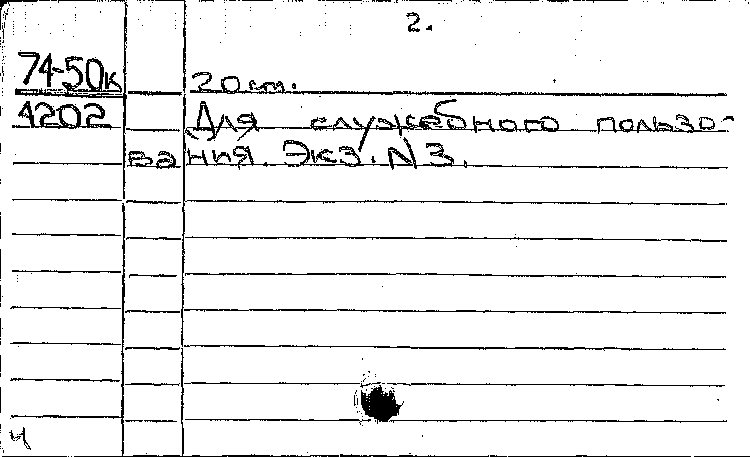 2.
74-50к 20 см.
4202 Для служебного пользо-
вания. Экз. N 3.
ч